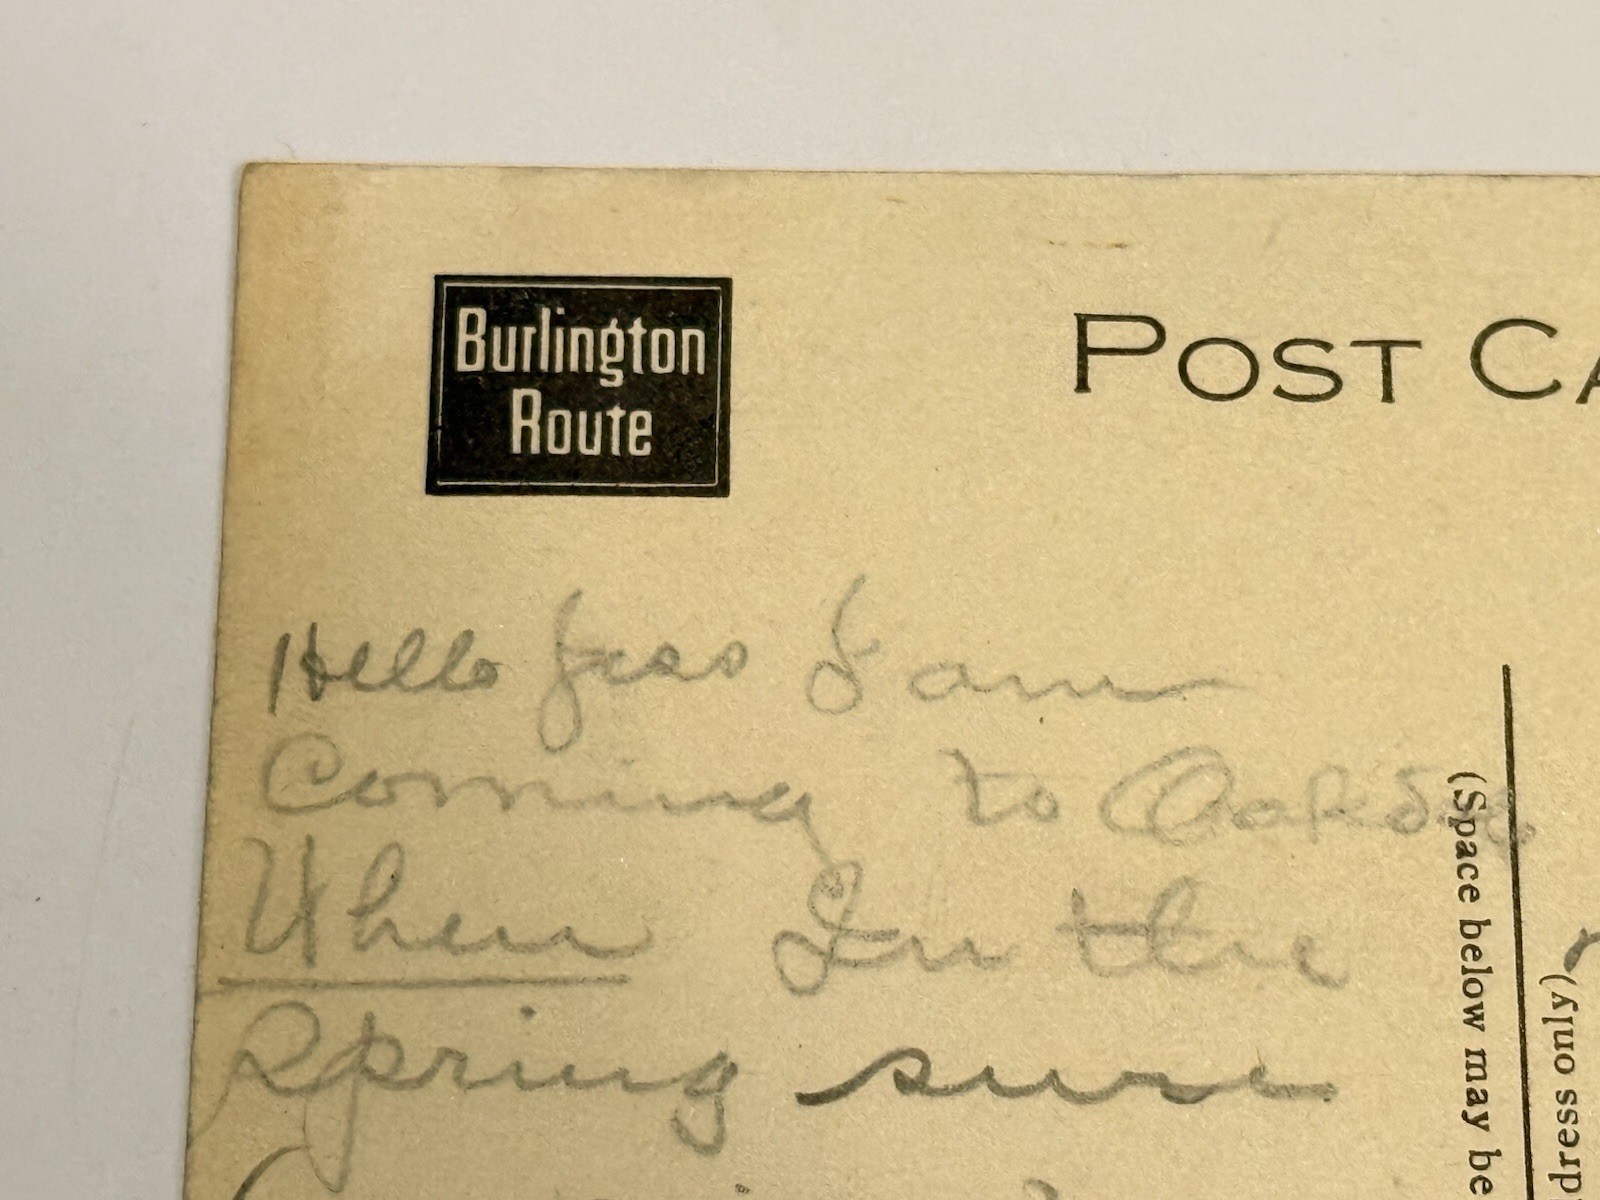 Burlington
Route
POST CA
Hello Jess I am
Coming to
When In the
Spring sure
(Space below may be
dress only)